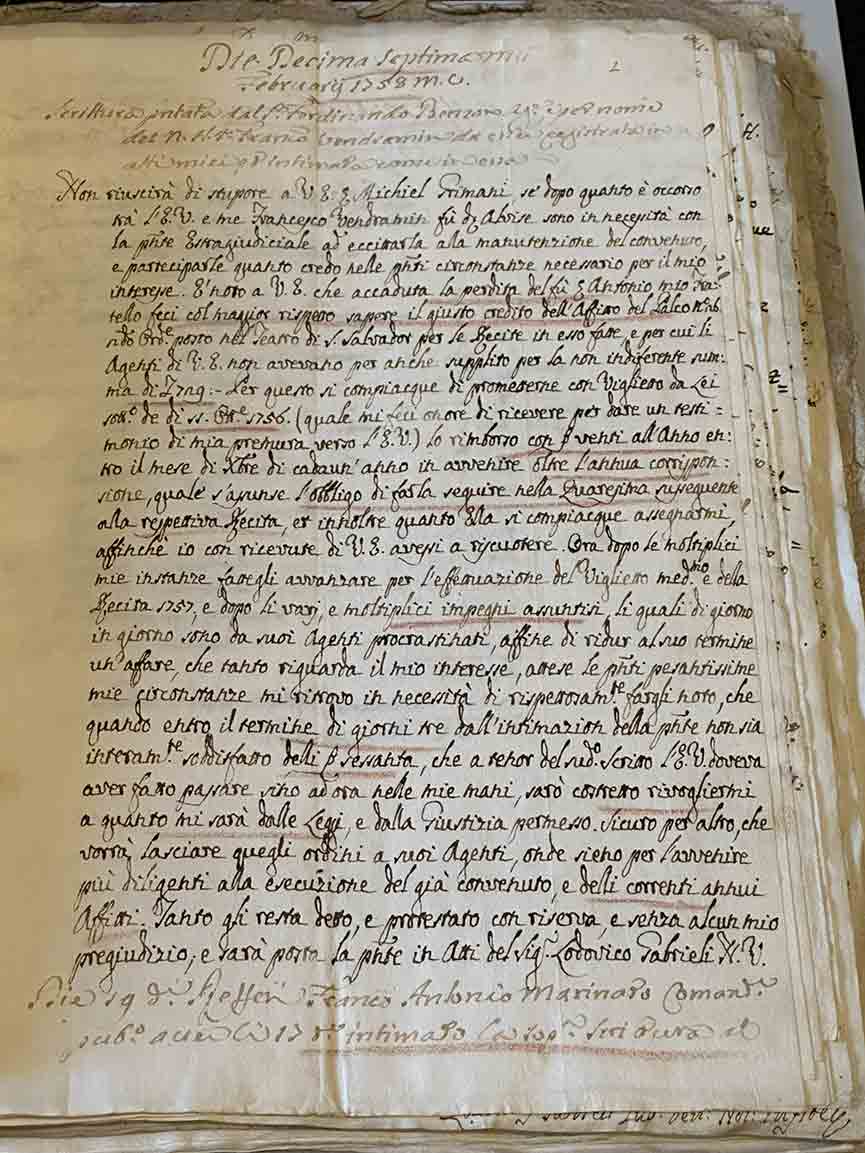 Die Decima septima m
February 1758 M.V.
Scrittura pñtata dal Sr. Ferdinando
del N. H. Sr. Franco Vendramin da esser registrata in
atti miei, p intimata come in essa
Non riuscirà di stupore a V. E. Michiel Grimani se dopo quanto è occorso
trà l'E. V. e me Francesco Vendramin fù Alvise sono in necessità con
la pñte Estragiudiciale ad eccitarla alla manutenzione del convenuto,
e parteciparle quanto credo nelle pñti circonstanze necessario per il mio
interesse. È noto a V. E. che accaduta la perdita del fù Antonio mio Fra:
tello feci col maggior rispetto sapere il giusto credito dell'Affitto del Palco No. 16
Orde. posto nel Teatro di S. Salvador per le Recite in esso fatte, e per cui li
Agenti di V. E. non avevano per anche supplito per la non indiferente sum:
ma di 729:- Per questo si compiacque di prometterne con Viglietto da Lei
sotto. de di 1756. (quale mi feci onore di ricevere per dare un testi:
monio di mia premura verso l'E. V.) lo rimborso con venti all'Anno en:
tro il mese di Xbre di cadaun'anno in avvenire oltre l'annua corrispon:
sione, quale s'asunse l'obbligo di farla seguire nella Quaresima susseguente
alla respettiva Recita, et innoltre quanto Ella si compiacque assegnarmi,
affinchè io con ricevute di V. E. avessi a riscuotere. Ora dopo le moltiplici
mie instanze fattegli avvanzare per l'effettuazione del Viglietto medmo. e della
Recita 1757, e dopo li varj, e moltiplici impegni assuntisi, li quali di giorno
in giorno sono da suoi Agenti procrastinati, affine di ridur al suo termine
un'affare, che tanto riguarda il mio interesse, attese le pñti pesantissime
mie circonstanze mi ritrovo in necessità di rispettosamte. fargli noto, che
quando entro il termine di giorni tre dall'intimazion della pñte non sia
interamte. soddisfatto delli sessanta, che a tenor del sudo. Scritto l'E. V. doveva
aver fatto passare sino ad ora nelle mie mani, sarò costretto rivogliermi
a quanto mi sarà dalle Leggi, e dalla Giustizia permesso. Sicuro per altro, che
vorrà lasciare quegli ordini a suoi Agenti, onde sieno per l'avvenire
più diligenti alla esecuzione del già convenuto, e delli correnti annui
Affitti. Tanto gli resta detto, e protestato con riserva, e senza alcun mio
pregiudizio, e sarà posta la pñte in Atti del Sigr. Lodovico Gabrieli N. V.
Die 19 do. Refferì Franco Antonio Marinato Comandr.
pubo. aver li 17 do. intimato la sopa. scrittura al